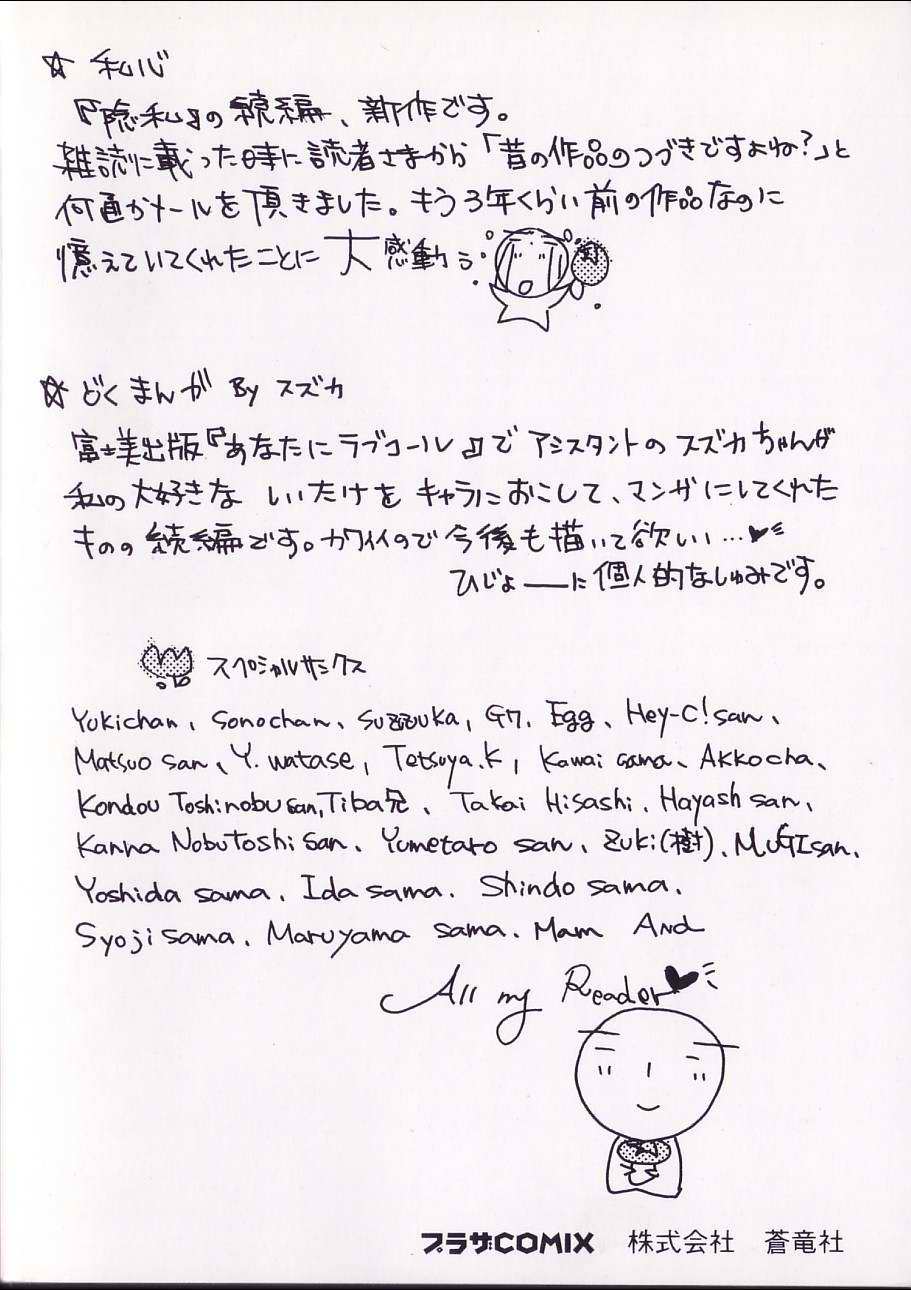 ☆ 私心
『隠私』の続編、新作です。
雑誌に載った時に読者さまから「昔の作品のつづきですよね?」と
何通かメールを頂きました。もう3年くらい前の作品なのに
憶えていてくれたことに大感動
☆ どくまんが By スズカ
富士美出版『あなたにラブコール』でアシスタントのスズカちゃんが
私の大好きな しいたけを キャラにおこして、マンガにしてくれた
ものの続編です。カワイイので今後も描いて欲しい…♥
ひじょーに個人的なしゅみです。
スペシャルサンクス
Yukichan、Sonochan、Suzzuka, G7, Egg、Hey-C!san、
Matsuo san、Y. watase, Tetsuya.K, Kawai sama、Akkocha、
Kondou Toshinobu san, Tiba兄、Takai Hisashi、Hayash san、
Kanna Nobutoshi san、Yumetaro san、Zuki(樹)、MUGIsan、
Yoshida sama、Ida sama. Shindo sama.
Syoji sama、Maruyama sama、Mam And
All my Reader♥
プラザCOMIX 株式会社 蒼竜社